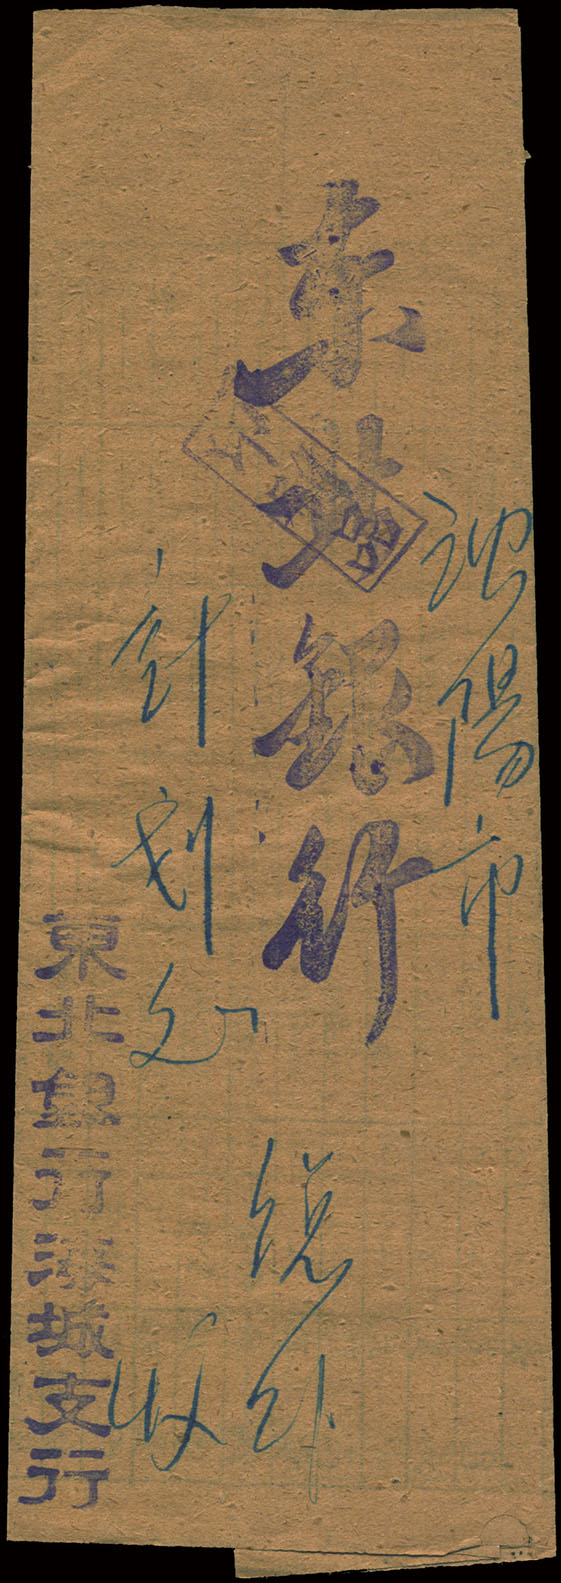 沈陽市
东北銀行
總行
計划处
收
東北銀行海城支行